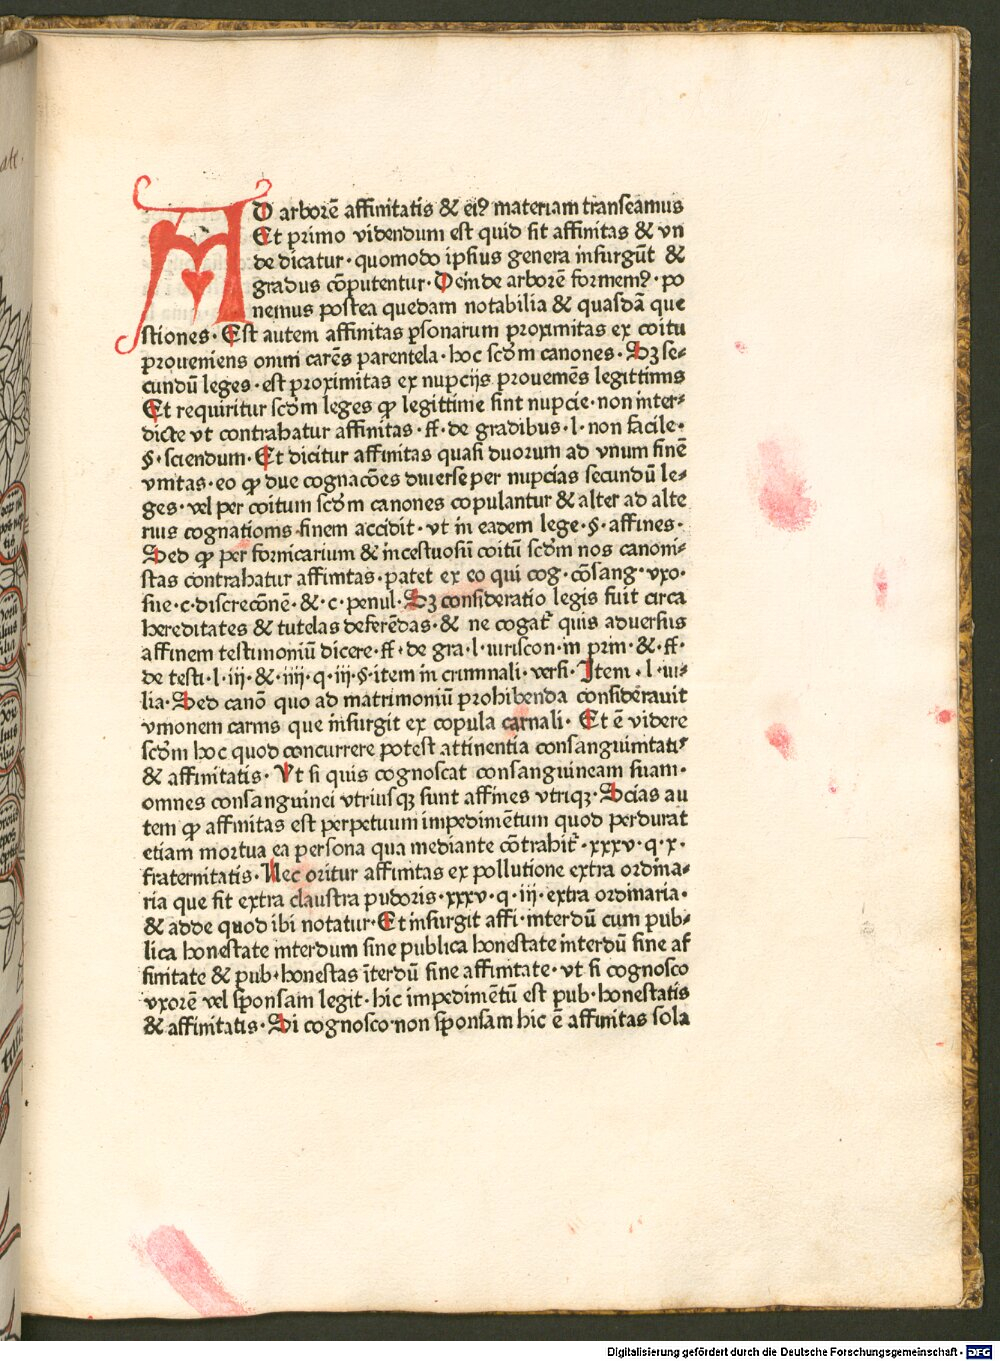 AD arborē affinitatis & eiꝰ materiam transeamus
Et primo videndum est quid sit affinitas & vn
de dicatur · quomodo ipsius genera insurgūt &
gradus cōputentur · Deinde arborē formemꝰ · po
nemus postea quedam notabilia & quasdā que
stiones · Est autem affinitas ꝑsonarum proximitas ex coitu
proueniens omni carēs parentela · hoc scd̄m canones · Sꝫ se⸗
cundū leges · est proximitas ex nupcijs proueniēs legittimis
Et requiritur scd̄m leges ꝙ legittime sint nupcie · non inter⸗
dicte vt contrahatur affinitas · ff · de gradibus · l · non facile ·
§ · sciendum · Et dicitur affinitas quasi duorum ad vnum finē
vnitas · eo ꝙ due cognacōes diuerse per nupcias secundū le⸗
ges · vel per coitum scd̄m canones copulantur & alter ad alte
rius cognationis finem accidit · vt in eadem lege · § · affines ·
Sed ꝙ per fornicarium & incestuosū coitū scd̄m nos canoni⸗
stas contrahatur affinitas · patet ex eo qui cog · cōsang · vxo ·
sue · c · discrecōnē · & · c · penul · Sꝫ consideratio legis fuit circa
hereditates & tutelas deferēdas · & ne cogat᷑ quis aduersus
affinem testimoniū dicere · ff · de gra · l · iuriscon · in prin · & · ff ·
de testi · l · iii · & · iiii · q · iii · § · item in criminali · versi · Item · l · iu⸗
lia · Sed canō quo ad matrimoniū prohibenda considerauit
vnionem carnis que insurgit ex copula carnali · Et ē videre
scd̄m hoc quod concurrere potest attinentia consanguinitatis
& affinitatis · Vt si quis cognoscat consanguineam suam ·
omnes consanguinei vtriusqꝫ sunt affines vtriqꝫ · Scias au
tem ꝙ affinitas est perpetuum impedimētum quod perdurat
etiam mortua ea persona qua mediante cōtrahit᷑ · xxxv · q · x ·
fraternitatis · Nec oritur affinitas ex pollutione extra ordina⸗
ria que fit extra claustra pudoris · xxxv · q · iii · extra ordinaria ·
& adde quod ibi notatur · Et insurgit affi · interdū cum pub⸗
lica honestate interdum sine publica honestate interdū sine af
finitate & pub · honestas īterdū sine affinitate · vt si cognosco
vxorē vel sponsam legit · hic impedimētū est pub · honestatis
& affinitatis · Si cognosco non sponsam hic ē affinitas sola
Digitalisierung gefördert durch die Deutsche Forschungsgemeinschaft - DFG